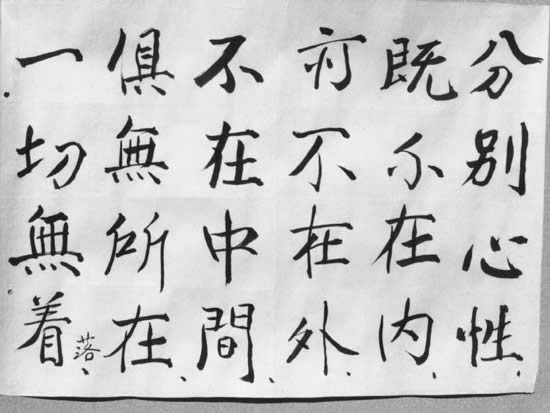 分别心性、
既不在内、
亦不在外、
不在中間、
俱無所在、
一切無着落、